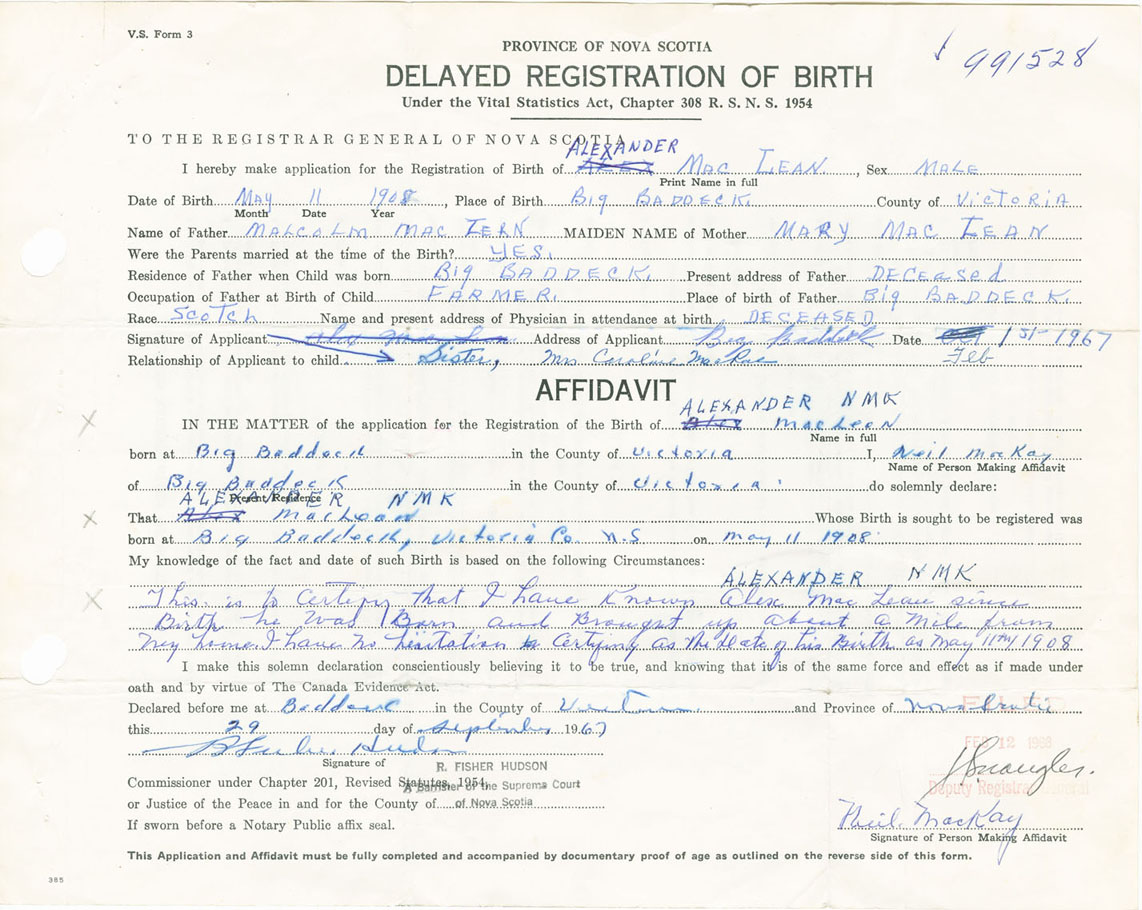 V.S. Form 3
PROVINCE OF NOVA SCOTIA
991528
DELAYED REGISTRATION OF BIRTH
Under the Vital Statistics Act, Chapter 308 R. S. N. S. 1954
TO THE REGISTRAR GENERAL OF NOVA SCOTIA
ALEXANDER
I hereby make application for the Registration of Birth of ALEX MAC LEAN, Sex MALE
Print Name in full
Date of Birth MAY 11 1908, Place of Birth BIG BADDECK. County of VICTORIA
Month Date Year
Name of Father MALCOLM MAC LEAN MAIDEN NAME of Mother MARY MAC LEAN
Were the Parents married at the time of the Birth? YES.
Residence of Father when Child was born BIG BADDECK. Present address of Father DECEASED
Occupation of Father at Birth of Child FARMER. Place of birth of Father BIG BADDECK.
Race Scotch Name and present address of Physician in attendance at birth DECEASED
Signature of Applicant Alex Mac Lean Address of Applicant Big Baddeck Date 1st 1967
Feb
Relationship of Applicant to child Sister, Mrs Caroline MacRae
AFFIDAVIT
ALEXANDER NMK
IN THE MATTER of the application for the Registration of the Birth of Alex MacLean
Name in full
born at Big Baddeck in the County of Victoria I, Neil MacKay
Name of Person Making Affidavit
of Big Baddeck in the County of Victoria do solemnly declare:
Present Residence
ALEXANDER NMK
That Alex MacLean Whose Birth is sought to be registered was
born at Big Baddeck, Victoria Co. N.S on May 11 1908
My knowledge of the fact and date of such Birth is based on the following Circumstances:
ALEXANDER NMK
This is to Certify that I have Known Alex Mac Lean since
Birth he was Born and Brought up about a Mile from
My home I have no hesitation in Certifying as the Date of his Birth as May 11th 1908
I make this solemn declaration conscientiously believing it to be true, and knowing that it is of the same force and effect as if made under
oath and by virtue of The Canada Evidence Act.
Declared before me at Baddeck in the County of Victoria and Province of Nova Scotia
this 29 day of September 1967
FILED
FEB 12 1968
Signature of
R. FISHER HUDSON
Commissioner under Chapter 201, Revised Statutes, 1954
A Barrister of the Supreme Court
Deputy Registrar General
or Justice of the Peace in and for the County of of Nova Scotia
Neil MacKay
If sworn before a Notary Public affix seal.
Signature of Person Making Affidavit
This Application and Affidavit must be fully completed and accompanied by documentary proof of age as outlined on the reverse side of this form.
385